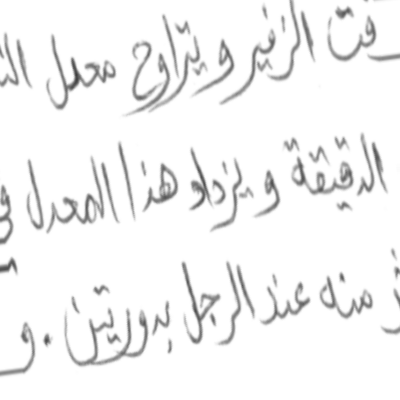 وقت الزفير ويتراوح معدل
الدقيقة ويزداد هذا المعدل في
منه عند الرجل بدورتين . و